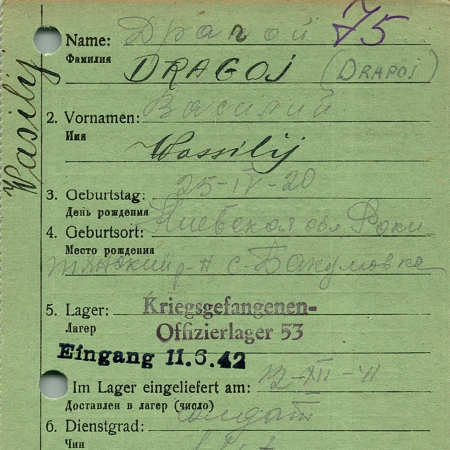 75
Name: Драгой
Фамилия
DRAGOJ (DRAPOJ)
Wasilij
2. Vornamen: Василий
Имя
Wassilij
3. Geburtstag: 25-IV-20
День рождения
4. Geburtsort: Киевская обл Раки
Место рождения
тянский р-н с. Бакумовка
5. Lager: Kriegsgefangenen-
Лагерь Offizierlager 53
Eingang 11.6.42
Im Lager eingeliefert am: 12-XII-41
Доставлен в лагерь (число)
6. Dienstgrad: солдат
Чин